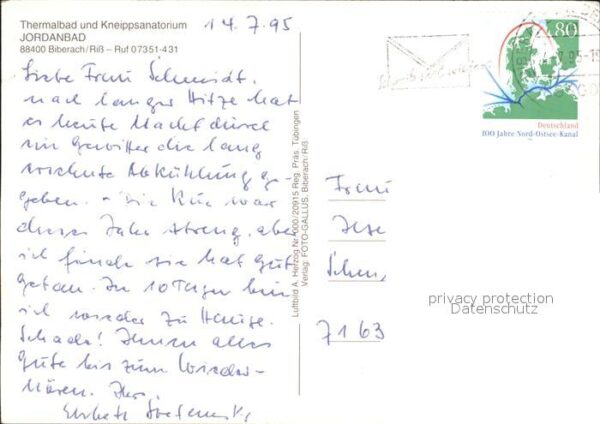 Thermalbad und Kneippsanatorium
JORDANBAD
88400 Biberach/Riß – Ruf 07351-431
14.7.95
Liebe Frau Schmidt,
nach langer Hitze hat
es heute Nacht durch
ein Gewitter die lang
ersehnte Abkühlung ge-
geben. – Die Kur war
dieses Jahr streng, aber
ich finde sie hat gut
getan. In 10 Tagen bin
ich wieder zu Hause.
Schade! Ihnen alles
Gute bis zum Wieder-
hören. Ihre
Luftbild A. Herzog Nr. 000/20915 Reg. Präs. Tübingen
Verlag: FOTO-GALLUS, Biberach/Riß
80
Deutschland
100 Jahre Nord-Ostsee-Kanal
Frau
Ilse
Schm
7163
privacy protection
Datenschutz